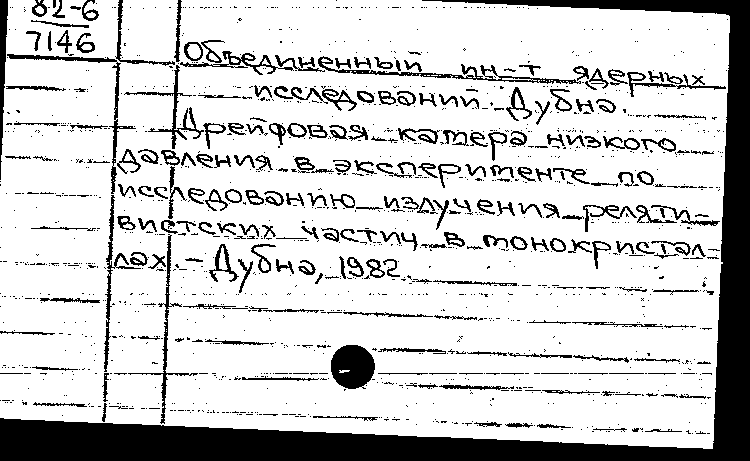 82-6
7146
Объединенный ин-т ядерных
исследований. Дубна.
Дрейфовая камера низкого
давления в эксперименте по
исследованию излучения реляти-
вистских частиц в монокристал-
лах. - Дубна, 1982.